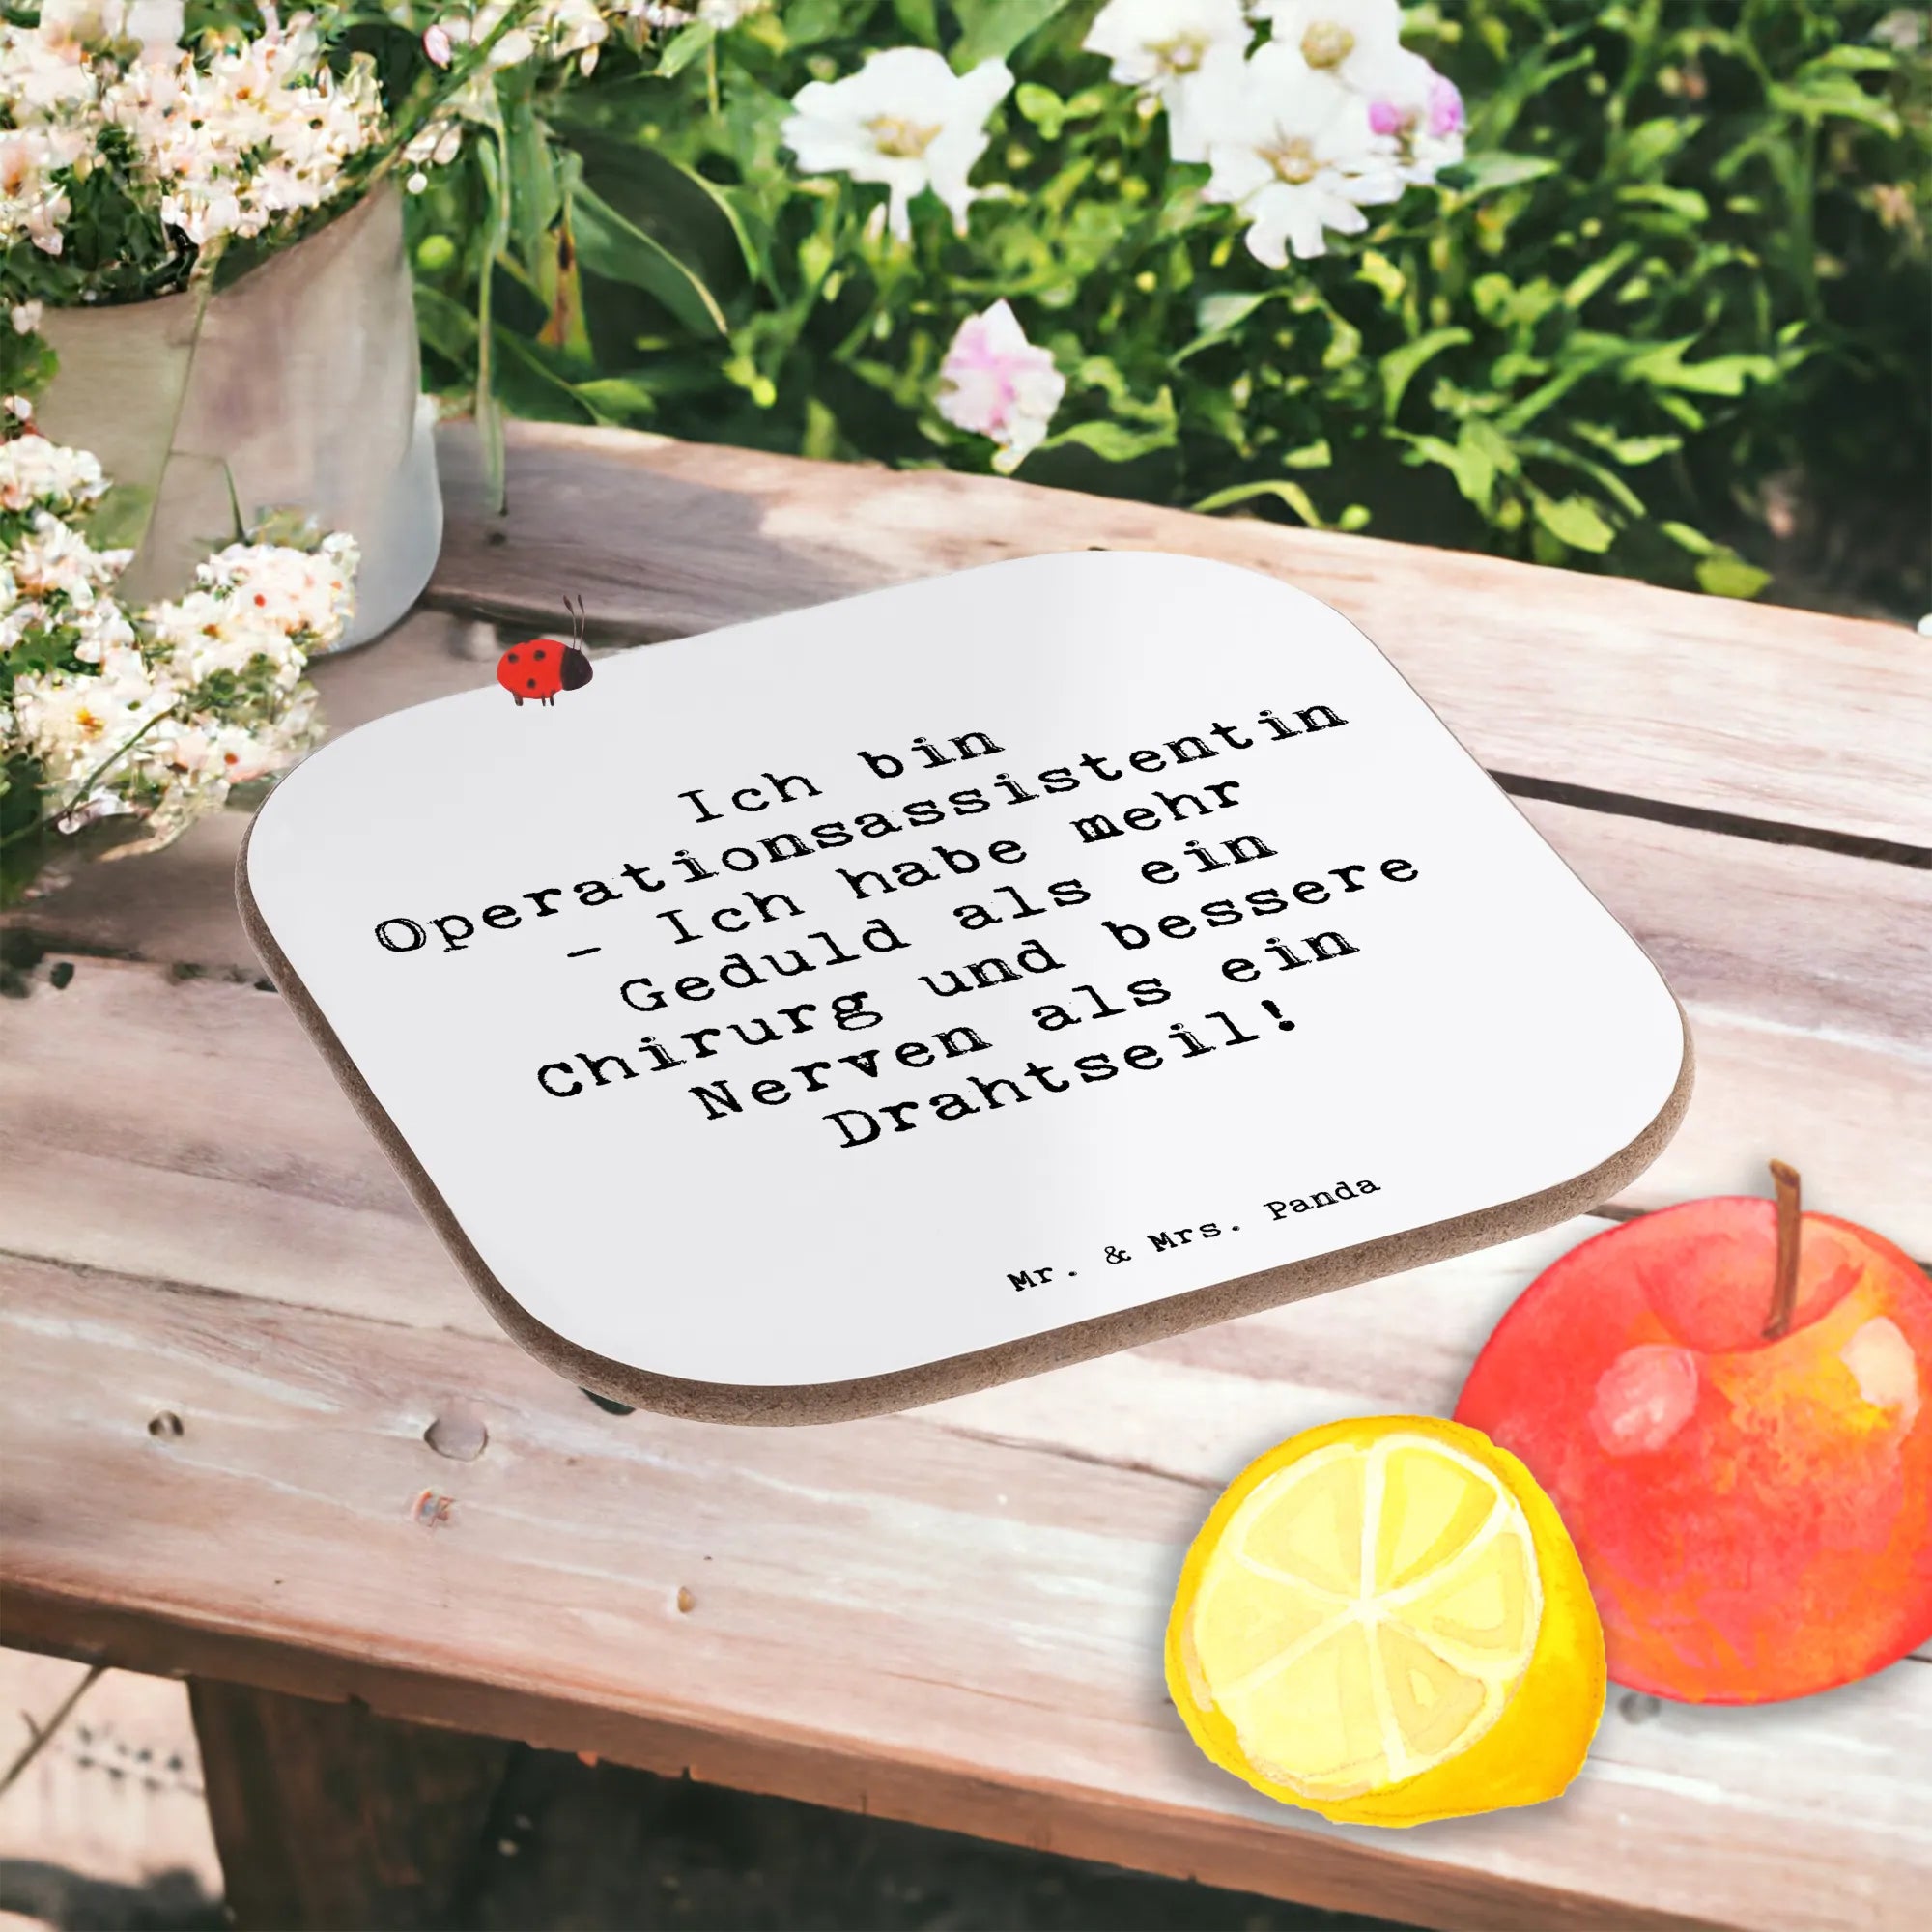 Ich bin
Operationsassistentin
- Ich habe mehr
Geduld als ein
Chirurg und bessere
Nerven als ein
Drahtseil!
Mr. & Mrs. Panda